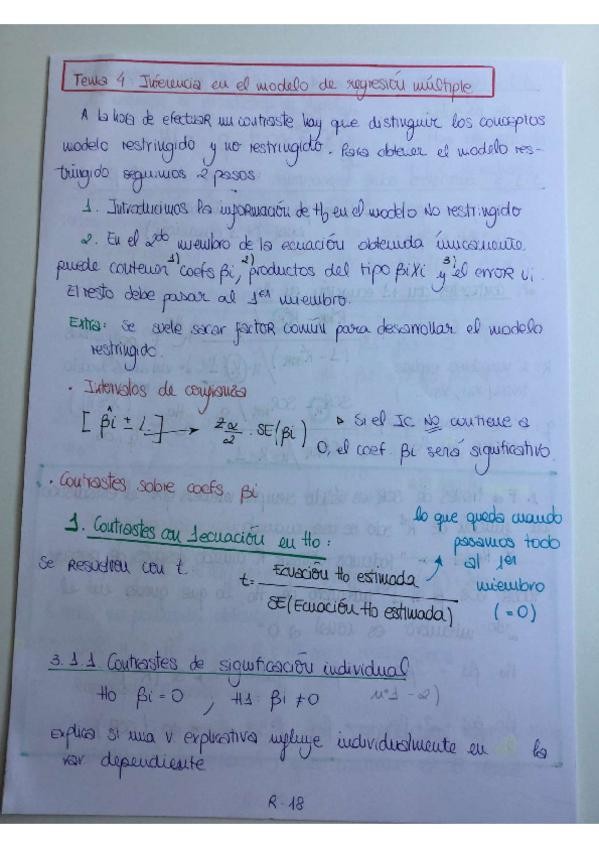 Tema 4: Inferencia en el modelo de regresión múltiple
A la hora de efectuar un contraste hay que distinguir los conceptos
modelo restringido y no restringido. Para obtener el modelo res-
tringido seguimos 2 pasos:
1. Introducimos la información de Ho en el modelo No restringido
2. En el 2do miembro de la ecuación obtenida únicamente
puede contener 1) coefs βi, 2) productos del tipo βiXi y 3) el error Ui.
El resto debe pasar al 1er miembro.
Extra: Se suele sacar factor común para desarrollar el modelo
restringido.
· Intervalos de confianza
[ β̂i ± L ] → Zα/2 · SE(βi)
▷ Si el IC NO contiene a
0, el coef. βi será significativo.
· Contrastes sobre coefs βi
1. Contrastes con 1 ecuación en Ho:
Se resuelven con t.
t = Ecuación Ho estimada / SE(Ecuación Ho estimada)
lo que queda cuando
pasamos todo
al 1er
miembro
(=0)
3.1.1 Contrastes de significación individual
Ho: βi = 0 ; H1: βi ≠ 0
Explica si una v. explicativa influye individualmente en la
var dependiente
R-18